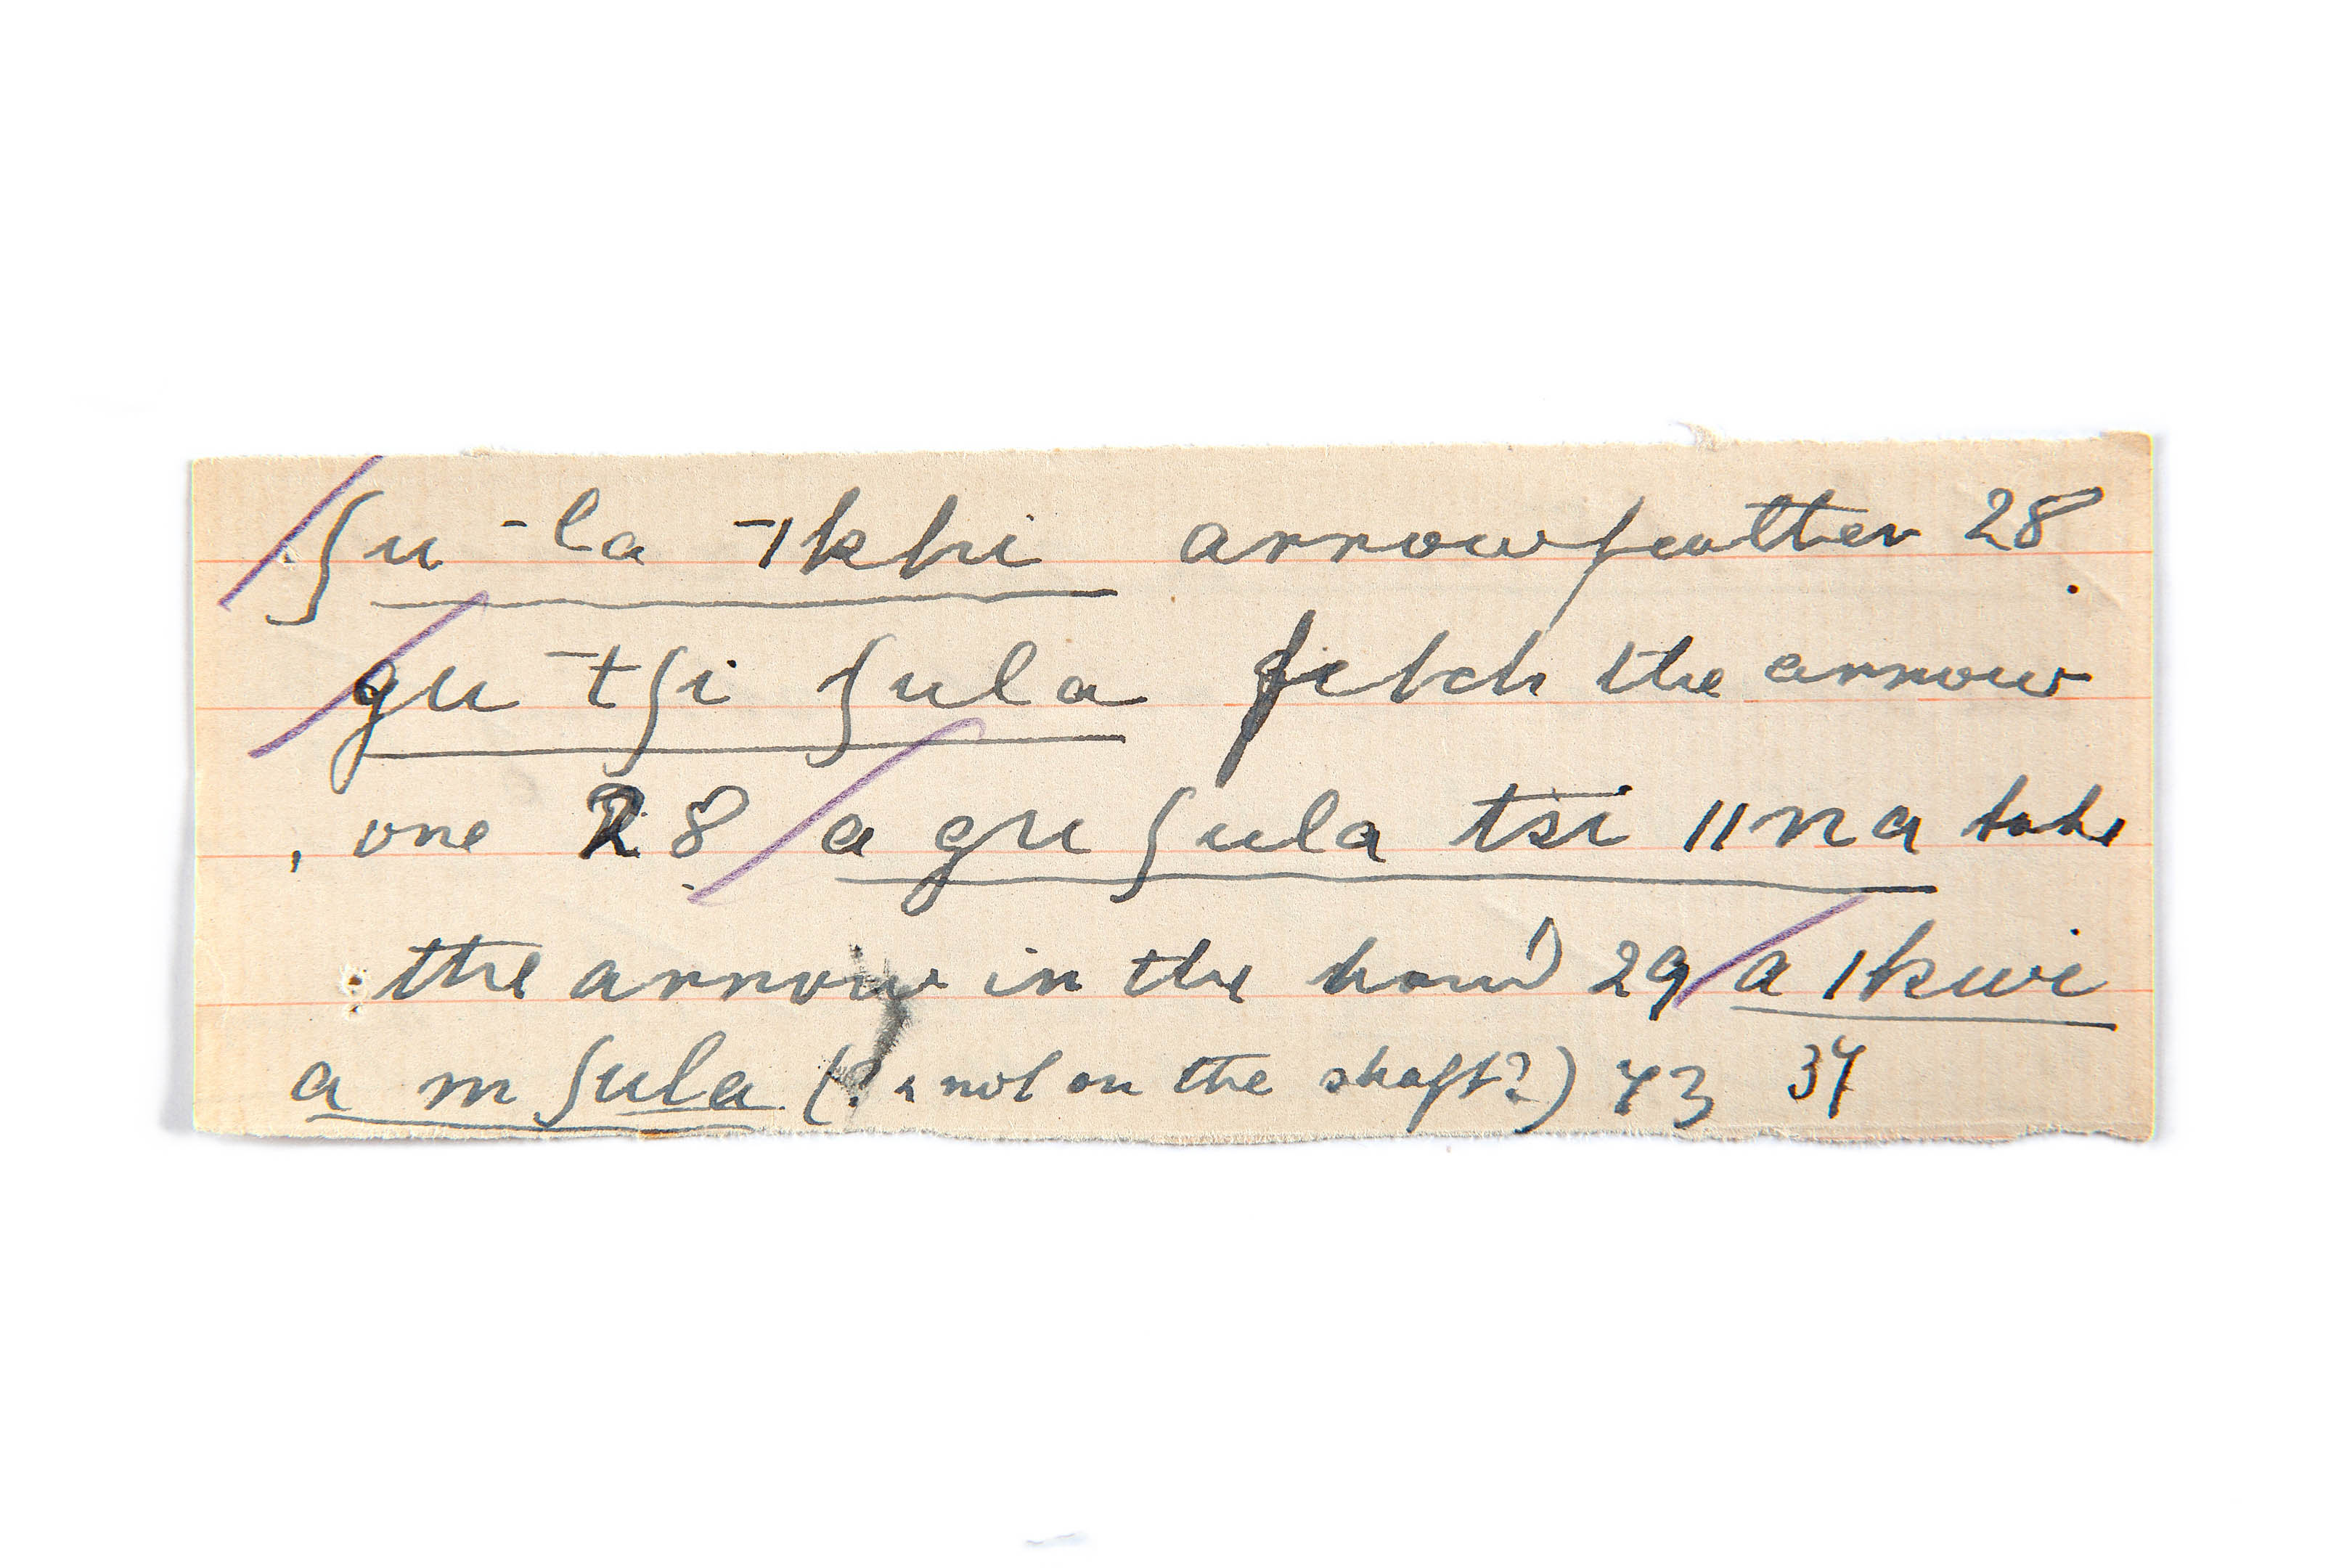 ʃu ‾la ‾ıkhi arrowfeather 28.
gu ‾tʃi ʃula fetch the arrow
, one 28 a gu ʃula tsi ıına take
the arrow in the hand 29 a ıkwe
a m ʃula (? not on the shaft?) 43 34